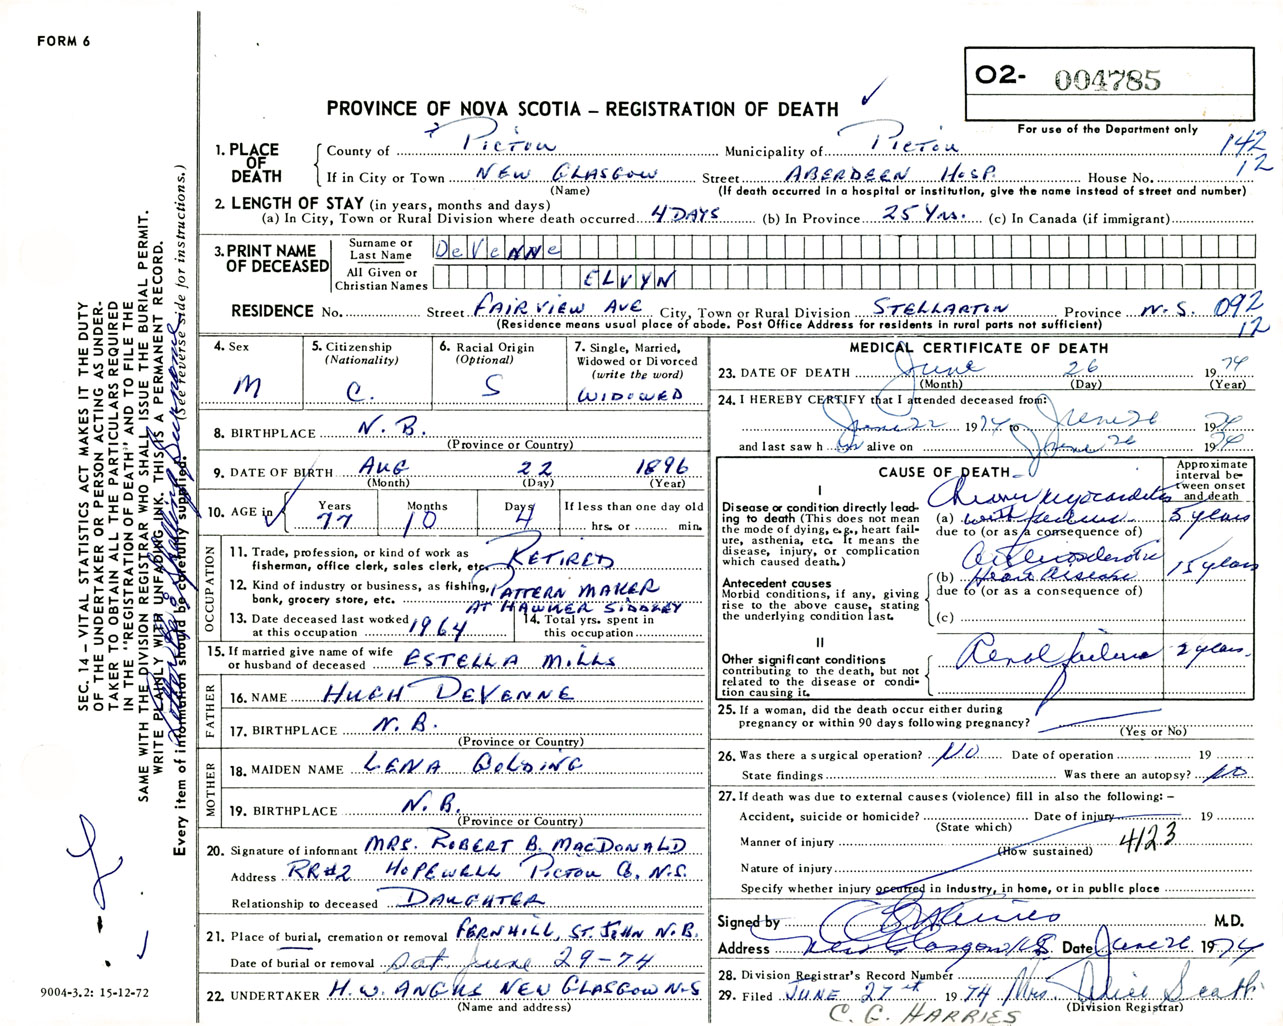 FORM 6
O2- 004785
For use of the Department only
PROVINCE OF NOVA SCOTIA – REGISTRATION OF DEATH ✓
1. PLACE OF DEATH
County of Pictou Municipality of Pictou 142
If in City or Town New Glasgow Street Aberdeen Hosp. House No. 12
(Name) (If death occurred in a hospital or institution, give the name instead of street and number)
2. LENGTH OF STAY (in years, months and days)
(a) In City, Town or Rural Division where death occurred 4 DAYS (b) In Province 25 Yrs. (c) In Canada (if immigrant)
3. PRINT NAME OF DECEASED
Surname or Last Name DeVenne
All Given or Christian Names ELVYN
RESIDENCE No. Street FAIRVIEW AVE City, Town or Rural Division STELLARTON Province N.S. 092
(Residence means usual place of abode. Post Office Address for residents in rural parts not sufficient) 12
4. Sex
M
5. Citizenship
(Nationality)
C.
6. Racial Origin
(Optional)
S
7. Single, Married,
Widowed or Divorced
(write the word)
WIDOWED
8. BIRTHPLACE N.B.
(Province or Country)
9. DATE OF BIRTH AUG 22 1896
(Month) (Day) (Year)
10. AGE in Years 77 Months 10 Days 4 If less than one day old
hrs. or min.
OCCUPATION
11. Trade, profession, or kind of work as
fisherman, office clerk, sales clerk, etc. RETIRED
12. Kind of industry or business, as fishing, PATTERN MAKER
bank, grocery store, etc. AT HAWKER SIDDLEY
13. Date deceased last worked
at this occupation 1964
14. Total yrs. spent in
this occupation
15. If married give name of wife
or husband of deceased ESTELLA MILLS
FATHER
16. NAME HUGH DeVENNE
17. BIRTHPLACE N.B.
(Province or Country)
MOTHER
18. MAIDEN NAME LENA GOLDING
19. BIRTHPLACE N.B.
(Province or Country)
20. Signature of informant MRS. ROBERT B. MACDONALD
Address RR#2 HOPEWELL PICTOU Co. N.S.
Relationship to deceased DAUGHTER
21. Place of burial, cremation or removal FERNHILL, ST. JOHN N.B.
Date of burial or removal Sat June 29-74
22. UNDERTAKER H.W. ANGUS NEW GLASGOW N.S
(Name and address)
MEDICAL CERTIFICATE OF DEATH
23. DATE OF DEATH June 26 1974
(Month) (Day) (Year)
24. I HEREBY CERTIFY that I attended deceased from:
June 22 1974 to June 26 1974
and last saw h alive on June 26 1974
CAUSE OF DEATH
Approximate
interval be-
tween onset
and death
I
Disease or condition directly lead-
ing to death (This does not mean
the mode of dying, e.g., heart fail-
ure, asthenia, etc. It means the
disease, injury, or complication
which caused death.)
Chronic Myocarditis
(a) with failure 5 years
due to (or as a consequence of)
Arteriosclerotic
(b) Heart Disease 15 years
due to (or as a consequence of)
(c)
Antecedent causes
Morbid conditions, if any, giving
rise to the above cause, stating
the underlying condition last.
II
Other significant conditions
contributing to the death, but not
related to the disease or condi-
tion causing it.
Renal failure 2 years
25. If a woman, did the death occur either during
pregnancy or within 90 days following pregnancy?
(Yes or No)
26. Was there a surgical operation? No Date of operation 19
State findings Was there an autopsy? No
27. If death was due to external causes (violence) fill in also the following: –
Accident, suicide or homicide? Date of injury 19
(State which)
Manner of injury 4123
(How sustained)
Nature of injury
Specify whether injury occurred in industry, in home, or in public place
Signed by M.D.
Address New Glasgow N.S. Date June 26 1974
28. Division Registrar's Record Number
29. Filed JUNE 27th 1974 Mrs. Alice Scott
(Division Registrar)
C. G. HARRIES
SEC. 14 – VITAL STATISTICS ACT MAKES IT THE DUTY
OF THE UNDERTAKER OR PERSON ACTING AS UNDER-
TAKER TO OBTAIN ALL THE PARTICULARS REQUIRED
IN THE "REGISTRATION OF DEATH" AND TO FILE THE
SAME WITH THE DIVISION REGISTRAR WHO SHALL ISSUE THE BURIAL PERMIT.
WRITE PLAINLY WITH UNFADING INK. THIS IS A PERMANENT RECORD.
Every item of information should be carefully supplied. (See reverse side for instructions.)
9004-3.2: 15-12-72